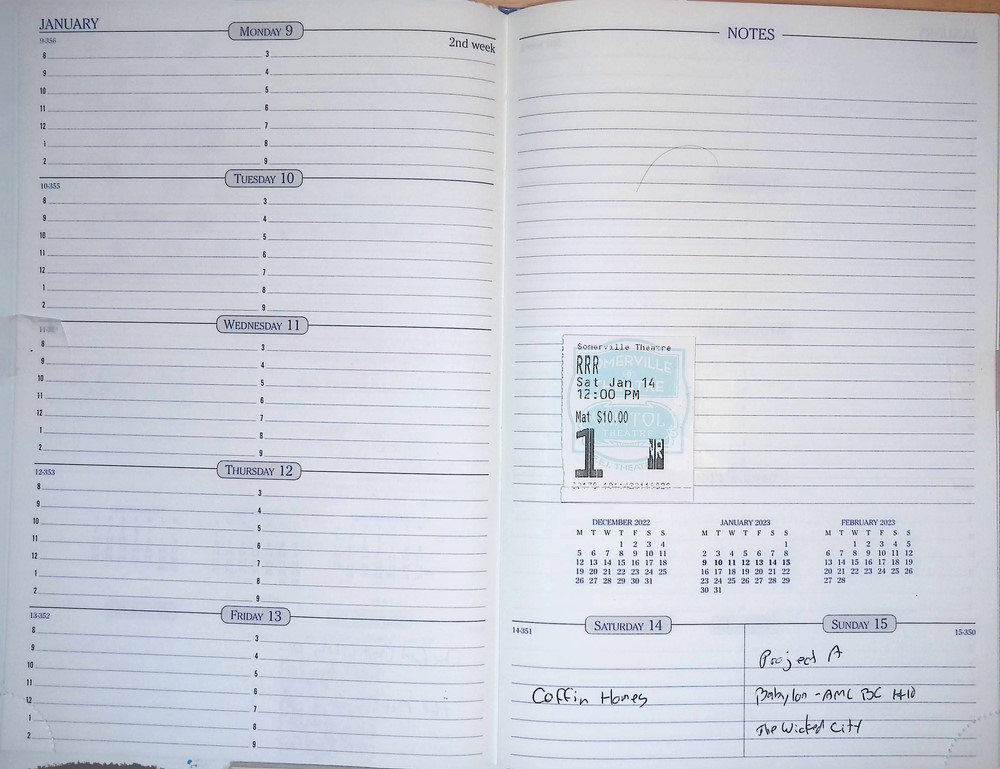 JANUARY
MONDAY 9
9-356
2nd week
8 3
9 4
10 5
11 6
12 7
1 8
2 9
TUESDAY 10
10-355
8 3
9 4
10 5
11 6
12 7
1 8
2 9
WEDNESDAY 11
8 3
9 4
10 5
11 6
12 7
1 8
2 9
THURSDAY 12
12-353
8 3
9 4
10 5
11 6
12 7
1 8
2 9
FRIDAY 13
13-352
8 3
9 4
10 5
11 6
12 7
1 8
2 9
NOTES
Somerville Theatre
RRR
Sat Jan 14
12:00 PM
Mat $10.00
1 NR
DECEMBER 2022
M T W T F S S
1 2 3 4
5 6 7 8 9 10 11
12 13 14 15 16 17 18
19 20 21 22 23 24 25
26 27 28 29 30 31
JANUARY 2023
M T W T F S S
1
2 3 4 5 6 7 8
9 10 11 12 13 14 15
16 17 18 19 20 21 22
23 24 25 26 27 28 29
30 31
FEBRUARY 2023
M T W T F S S
1 2 3 4 5
6 7 8 9 10 11 12
13 14 15 16 17 18 19
20 21 22 23 24 25 26
27 28
SATURDAY 14
14-351
Coffin Homes
SUNDAY 15
15-350
Project A
Babylon - AMC BC H10
The Wicked City